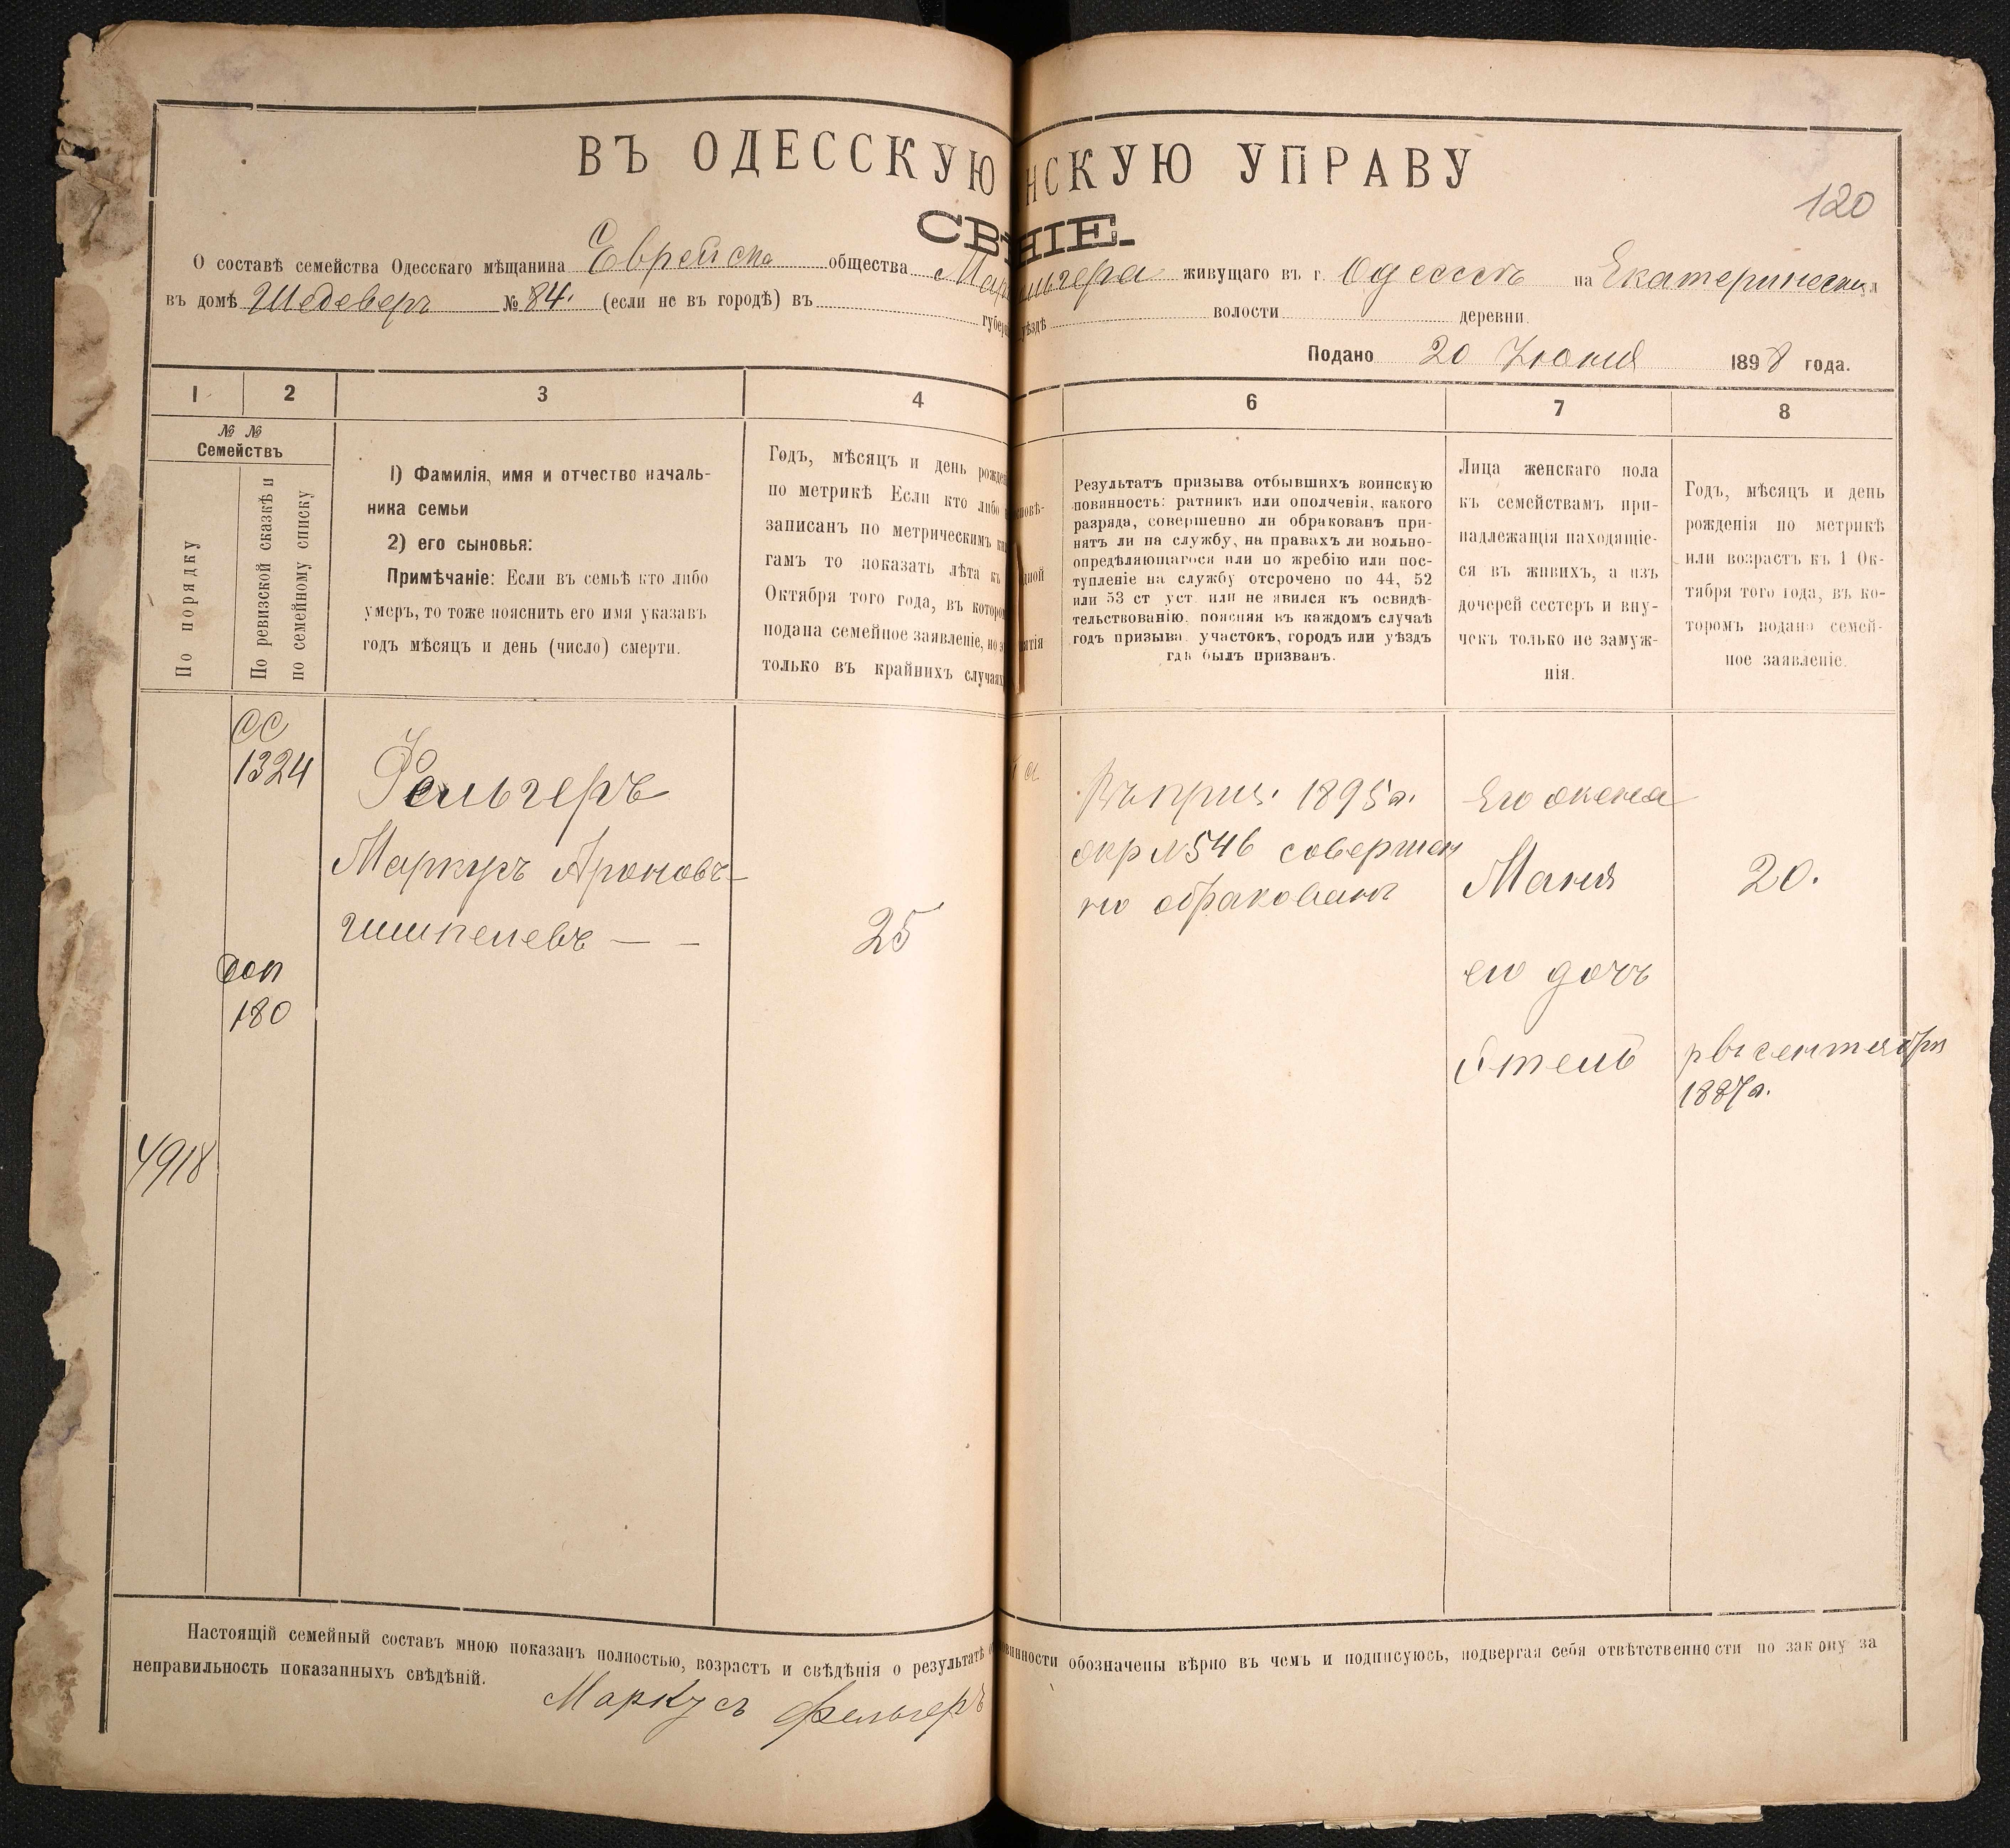 ВЪ ОДЕССКУЮ НСКУЮ УПРАВУ
120
СВ НІЕ.
О составѣ семейства Одесскаго мѣщанина Еврейска общества живущаго въ г. Одессѣ на
въ домѣ Шедеверъ № 84. (если не въ городѣ) въ губер уѣздѣ волости деревни
Подано 20 Іюня 1898 года.
1 2 3 4 6 7 8
№ № Семействъ
По порядку
По ревизской сказкѣ и
по семейному списку
1) Фамилія, имя и отчество началь-
ника семьи
2) его сыновья:
Примѣчаніе: Если въ семьѣ кто либо
умеръ, то тоже пояснить его имя указавъ
годъ мѣсяцъ и день (число) смерти.
Годъ, мѣсяцъ и день рожде
по метрикѣ Если кто либо
записанъ по метрическимъ кн
гамъ то показать лѣта къ
Октября того года, въ которо
подана семейное заявленіе, но э
только въ крайнихъ случаях
Результатъ призыва отбывшихъ воинскую
повинность: ратникъ или ополченія, какого
разряда, совершенно ли обракованъ при-
нятъ ли на службу, на правахъ ли вольно-
опредѣляющагося или по жребію или пос-
тупленіе на службу отсрочено по 44, 52
или 53 ст уст. или не явился къ освидѣ-
тельствованію, поясняя въ каждомъ случаѣ
годъ призыва, участокъ, городъ или уѣздъ
гдѣ былъ призванъ.
Лица женскаго пола
къ семействамъ при-
надлежащія находящіе-
ся въ живихъ, а изъ
дочерей сестеръ и вну-
чекъ только не замуж-
нія.
Годъ, мѣсяцъ и день
рожденія по метрикѣ
или возрастъ къ 1 Ок-
тября того года, въ ко-
торомъ подано семей-
ное заявленіе.
СС
1324
Фельгеръ
Маркусъ Ароновъ-
25
доп
180
4918
Въ приз. 1895 г.
окр №546 совершен
но обракованъ
Его жена
Маня 20.
его дочь
Этель
р въ сентября
1887 г.
Настоящій семейный составъ мною показанъ полностью, возрастъ и свѣдѣнія о результатѣ о винности обозначены вѣрно въ чемъ и подписуюсь, подвергая себя отвѣтственности по закону за
неправильность показанныхъ свѣдѣній.
Маркусъ Фельгеръ